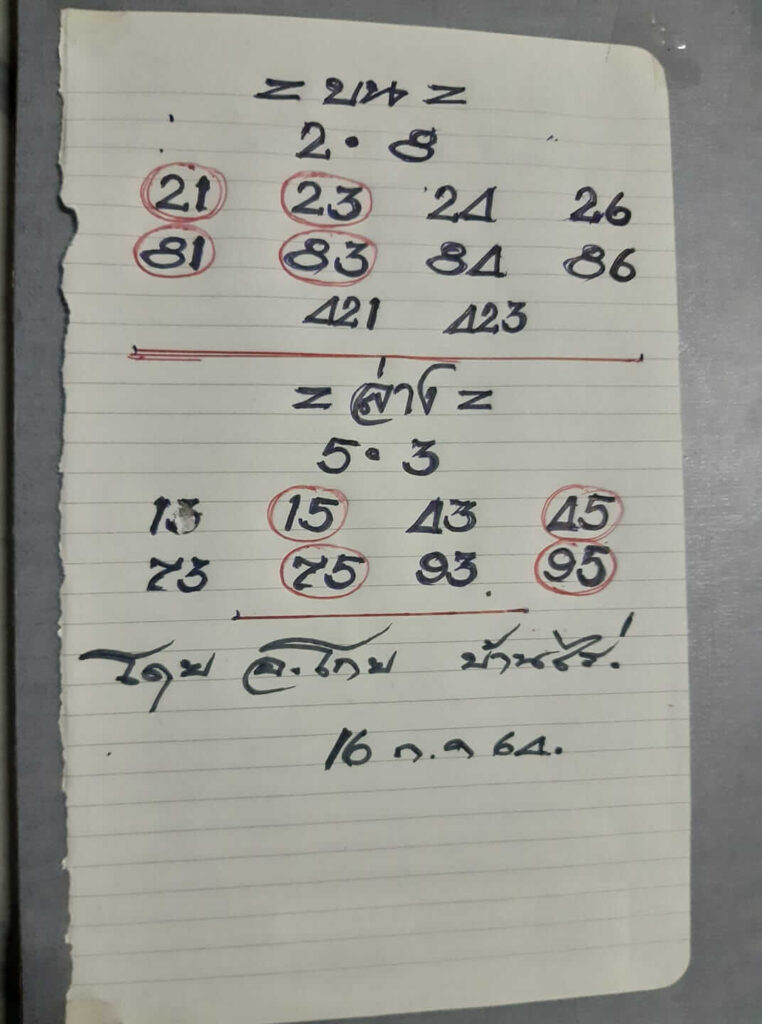 = บน =
2 · 8
21 23 24 26
81 83 84 86
421 423
= ล่าง =
5 · 3
13 15 43 45
73 75 93 95
โดย อ.โกย บ้านไร่.
16 ก.ค 64.